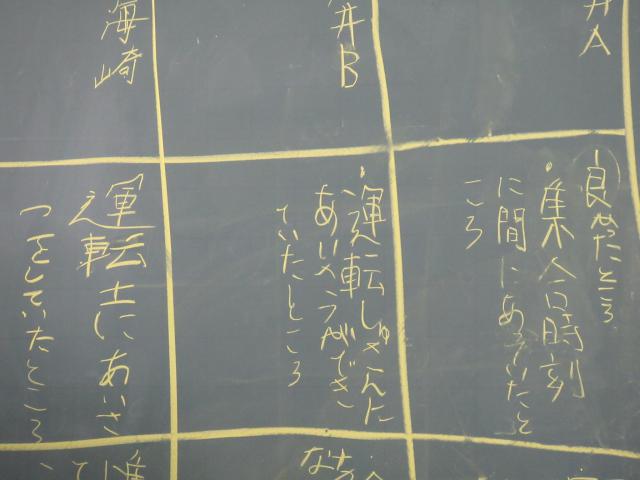 井A
良かったところ
・集合時刻
に間にあっていたと
ころ
井B
・運転しゅさんに
あいさつができ
ていたところ
海崎
運転士にあいさ
つをしていたところ、